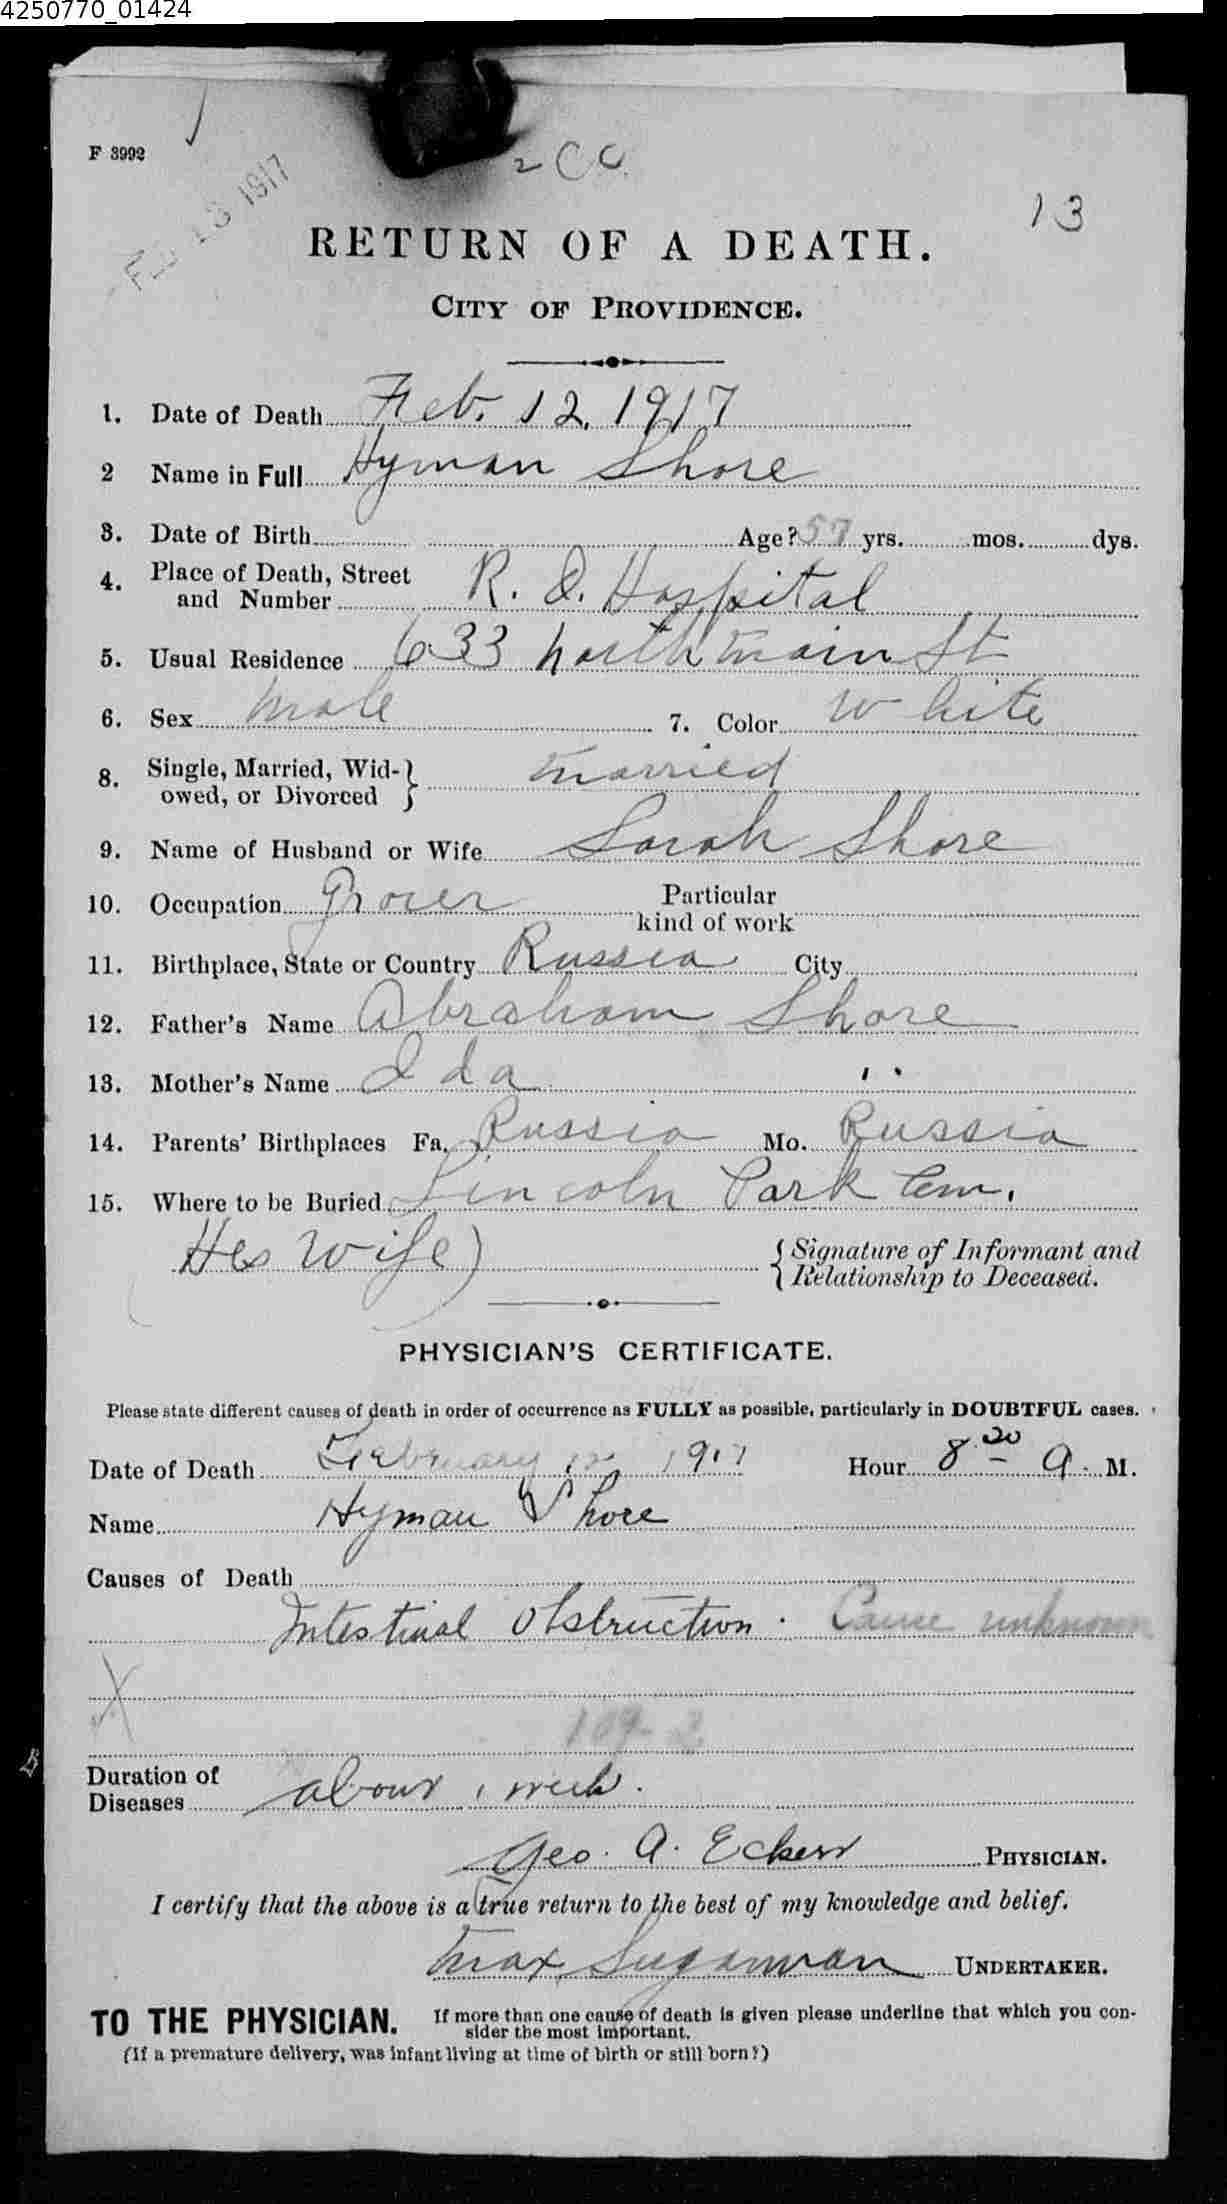 4250770_01424
F 3992
2 CC.
1917
13
RETURN OF A DEATH.
CITY OF PROVIDENCE.
1. Date of Death Feb. 12, 1917
2 Name in Full Hyman Shore
3. Date of Birth Age? 57 yrs. mos. dys.
4. Place of Death, Street and Number R. I. Hospital
5. Usual Residence 633 North Main St
6. Sex Male 7. Color White
8. Single, Married, Widowed, or Divorced } Married
9. Name of Husband or Wife Sarah Shore
10. Occupation Grocer Particular kind of work
11. Birthplace, State or Country Russia City
12. Father's Name Abraham Shore
13. Mother's Name Ida " "
14. Parents' Birthplaces Fa. Russia Mo. Russia
15. Where to be Buried Lincoln Park Cem.
His Wife) { Signature of Informant and Relationship to Deceased.
PHYSICIAN'S CERTIFICATE.
Please state different causes of death in order of occurrence as FULLY as possible, particularly in DOUBTFUL cases.
Date of Death February 12 1917 Hour 8 20 A. M.
Name Hyman Shore
Causes of Death
Intestinal Obstruction. Cause unknown
109-2
Duration of Diseases about 1 week.
Geo. A. Eckert PHYSICIAN.
I certify that the above is a true return to the best of my knowledge and belief.
Max Sugarman UNDERTAKER.
TO THE PHYSICIAN. If more than one cause of death is given please underline that which you consider the most important.
(If a premature delivery, was infant living at time of birth or still born?)